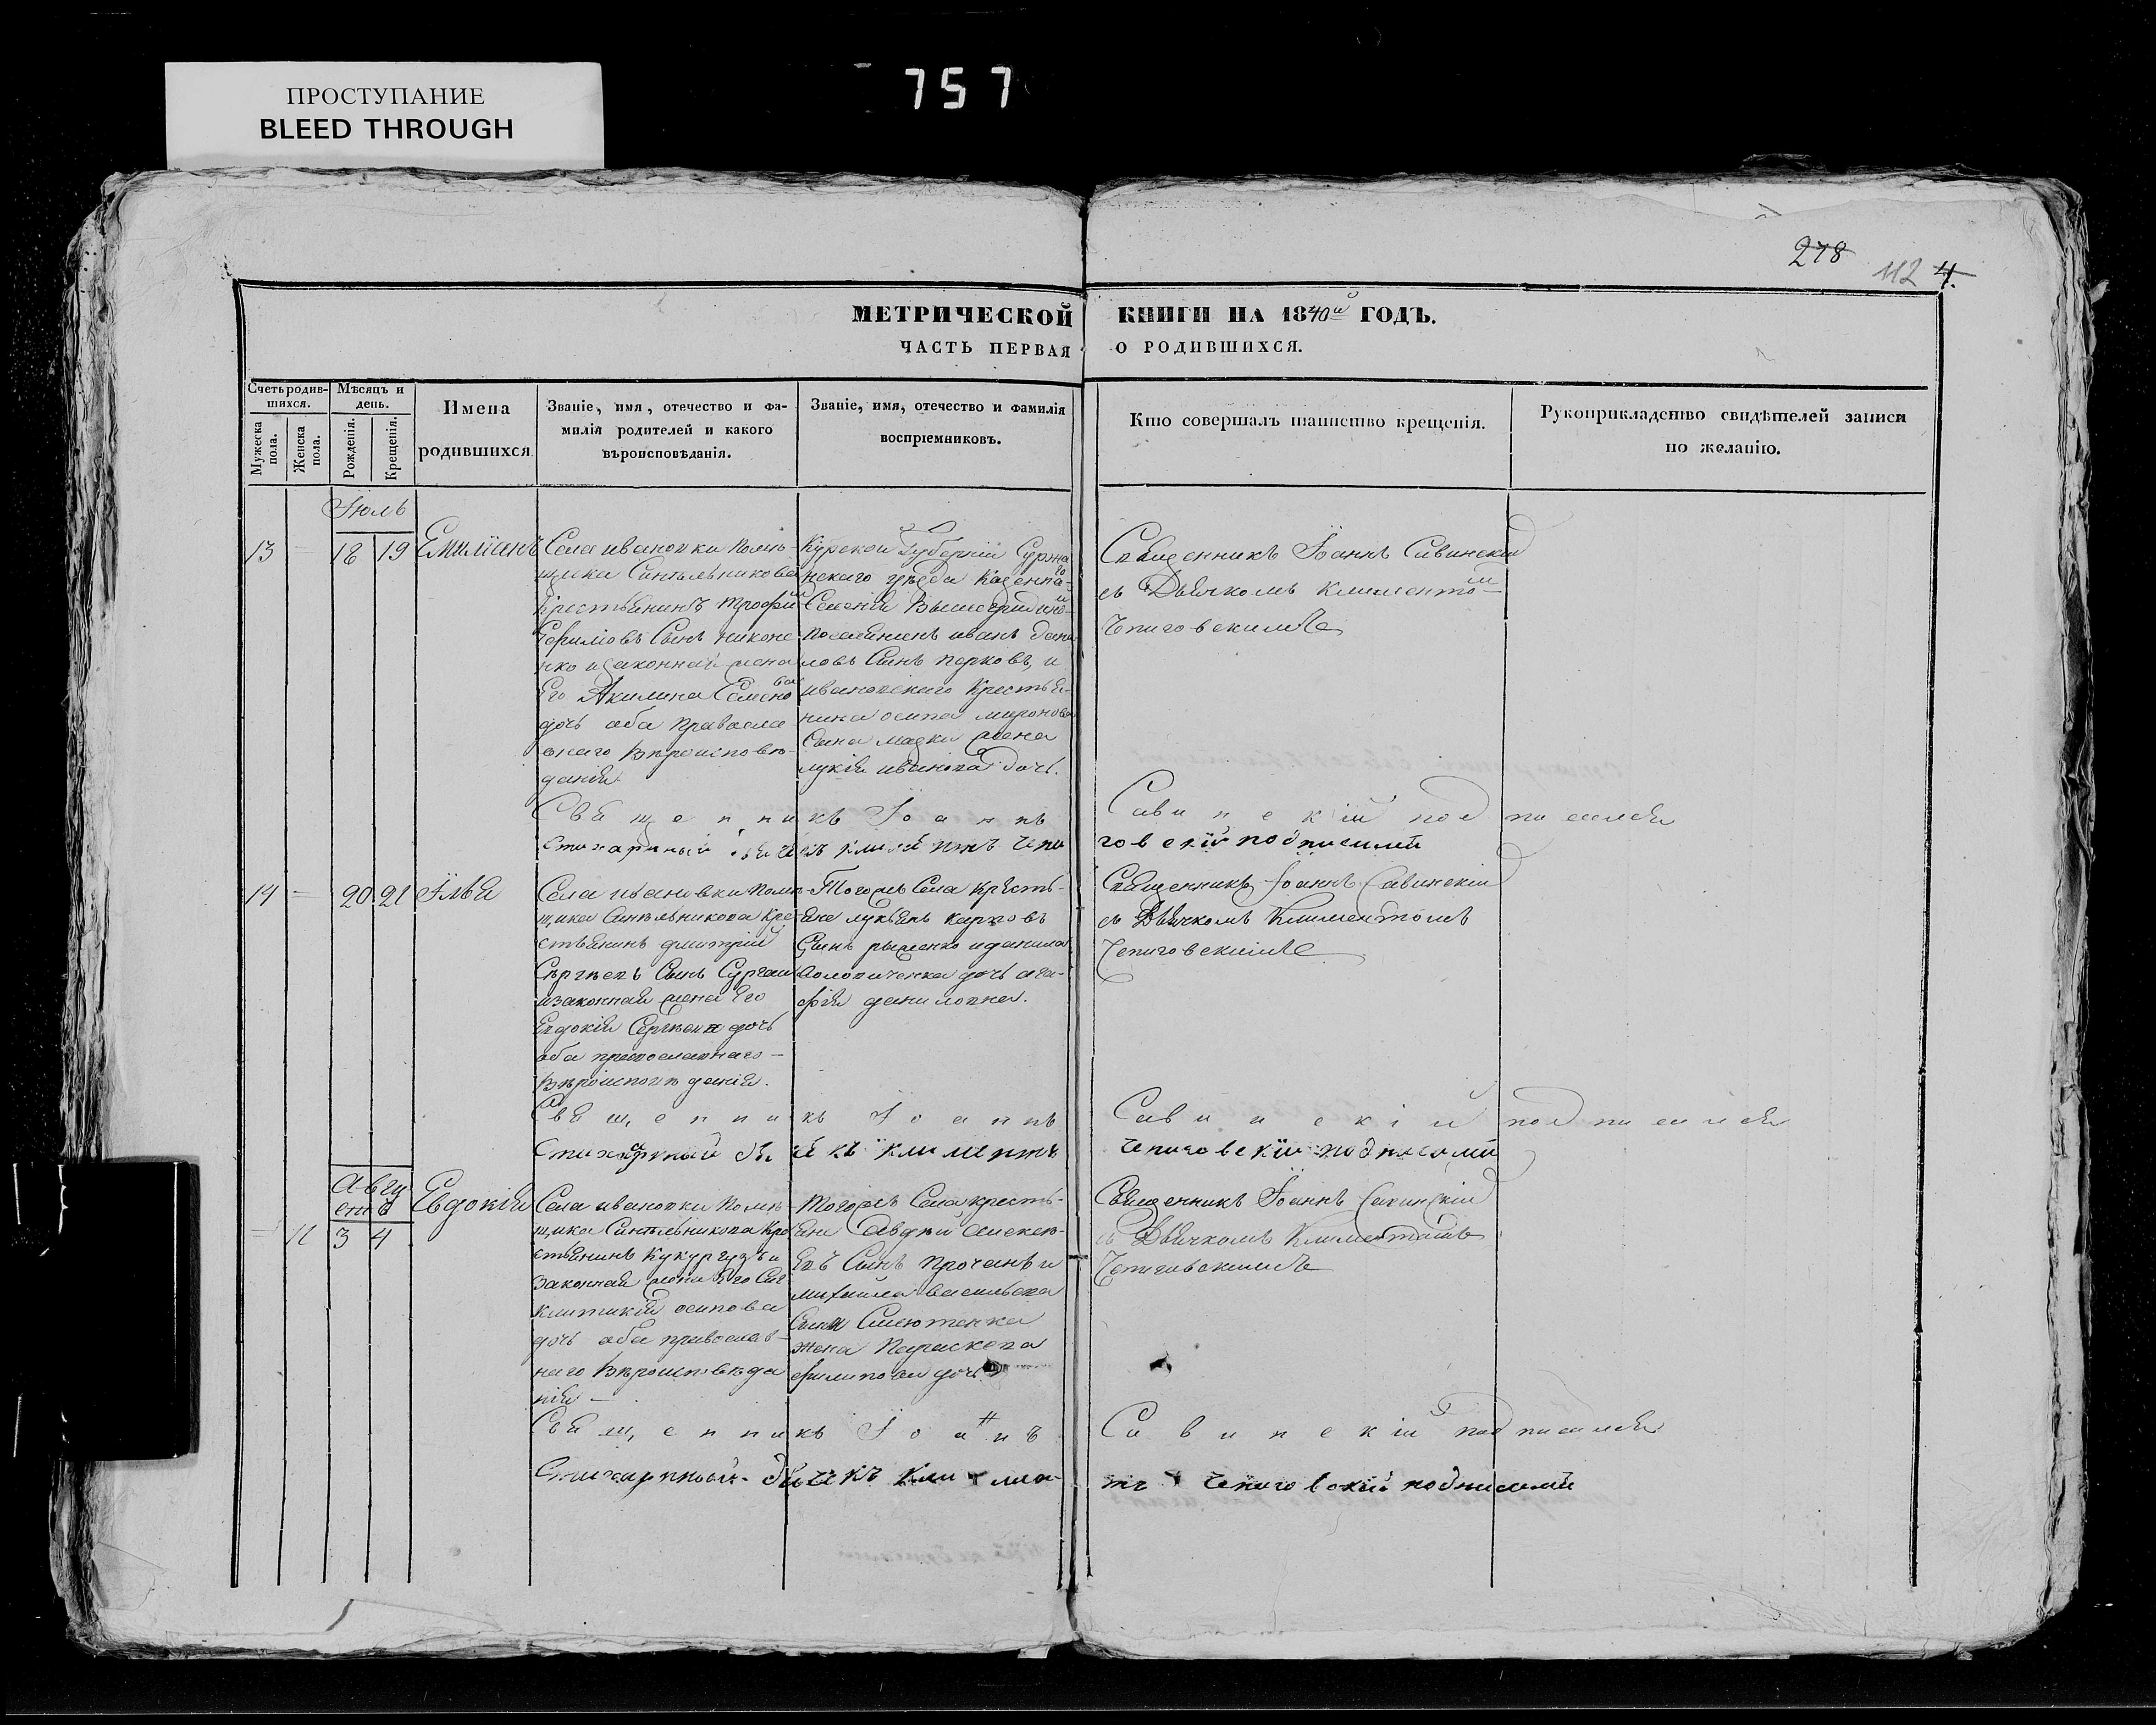 ПРОСТУПАНИЕ
BLEED THROUGH
757
278
112 4.
МЕТРИЧЕСКОЙ КНИГИ НА 1840й ГОДЪ.
ЧАСТЬ ПЕРВАЯ О РОДИВШИХСЯ.
Счетъ родив-
шихся.
Мужеска пола.
Женска пола.
Мѣсяцъ и
день.
Рожденія.
Крещенія.
Имена
родившихся
Званіе, имя, отечество и фа-
милія родителей и какого
вѣроисповѣданія.
Званіе, имя, отечество и фамилія
воспріемниковъ.
Кто совершалъ таинство крещенія.
Рукоприкладство свидѣтелей записи
по желанію.
Іюль
13 – 18 19 Емиліанъ
Села ивановки помѣ-
щика Синельникова
крестьянинъ трофи
Ефимовъ Сынъ никоне
нко и законная жена
Его Акилина Семено ва
дочь оба правосла
внаго вѣроисповѣ-
данія
Курской Губерніи Суржа
нскаго уѣзда
поселенинъ иванъ дани
ловъ Сынъ перковъ, и
ивановскаго крестья-
нина осипа миронова
Сына мазки жена
лукія иванова дочь.
Священникъ Іоаннъ Савинскій
съ Дьячкомъ Климентом
Чепиговскимъ
Священникъ Іоаннъ Савинскій подписался
Стихарный дьячекъ климентъ чепи говскій подписамй
14 – 20 21 Ілья
Села ивановки помѣ-
щика Синельникова кре
стьянинъ дмитрій
Сергѣевъ Сынъ Сургаи
изаконная жена Его
Евдокія Сергѣева дочь
оба православнаго –
вѣроисповѣданія.
Тогожъ Села кресть-
яне лукьянъ карповъ
Сынъ рыженко иданила
дочь ага-
фія даниловна.
Священникъ Іоаннъ Савинскій
съ Дьячкомъ Климентомъ
Чепиговскимъ
Священникъ Іоаннъ Савинскій подписался
Стихарный дьячекъ климентъ чепиговскій подписамй
Авгу
стъ
– 11 3 4 Евдокія
Села ивановки помѣ
щика Синельникова кре
стьянинъ кукургузъ и
законная жена Его
осипова
дочь оба православ-
наго вѣроисповѣда
нія –
Тогожъ Села кресть-
яне Авдѣй Алексѣ-
евъ Сынъ прочанъ и
михаила васильева
Сына Смютенка
жена Параскева
филипова дочь
Священникъ Іоаннъ Савинскій
съ Дьячкомъ Климентомъ
Чепиговскимъ
Священникъ Іоанъ Савинскій подписался
Стихарный дьячекъ климе- нтъ чепиговскій подписамй